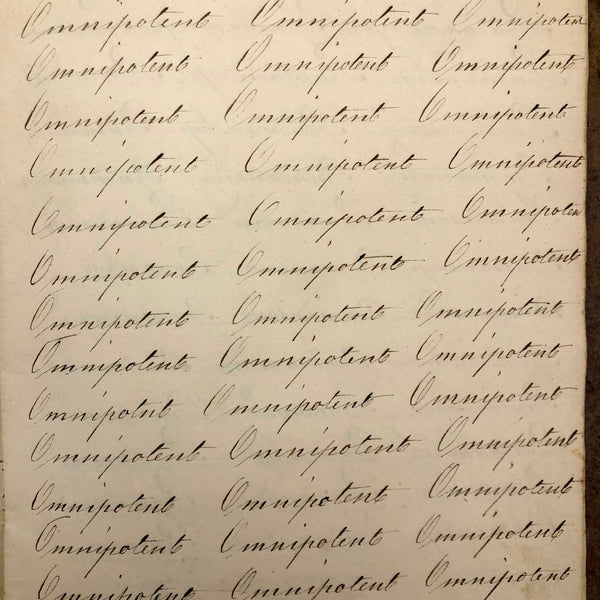 Omnipotent Omnipotent Omnipoten
Omnipotent Omnipotent Omnipotent
Omnipotent Omnipotent Omnipotent
Omnipotent Omnipotent Omnipotent
Omnipotent Omnipotent Omnipoten
Omnipotent Omnipotent Omnipotent
Omnipotent Omnipotent Omnipotent
Omnipotent Omnipotent Omnipotent
Omnipotnt Omnipotent Omnipotent
Omnipotent Omnipotent Omnipotent
Omnipotent Omnipotent Omnipotent
Omnipotent Omnipotent Omnipotent
Omnipotent Omnipotent Omnipotent